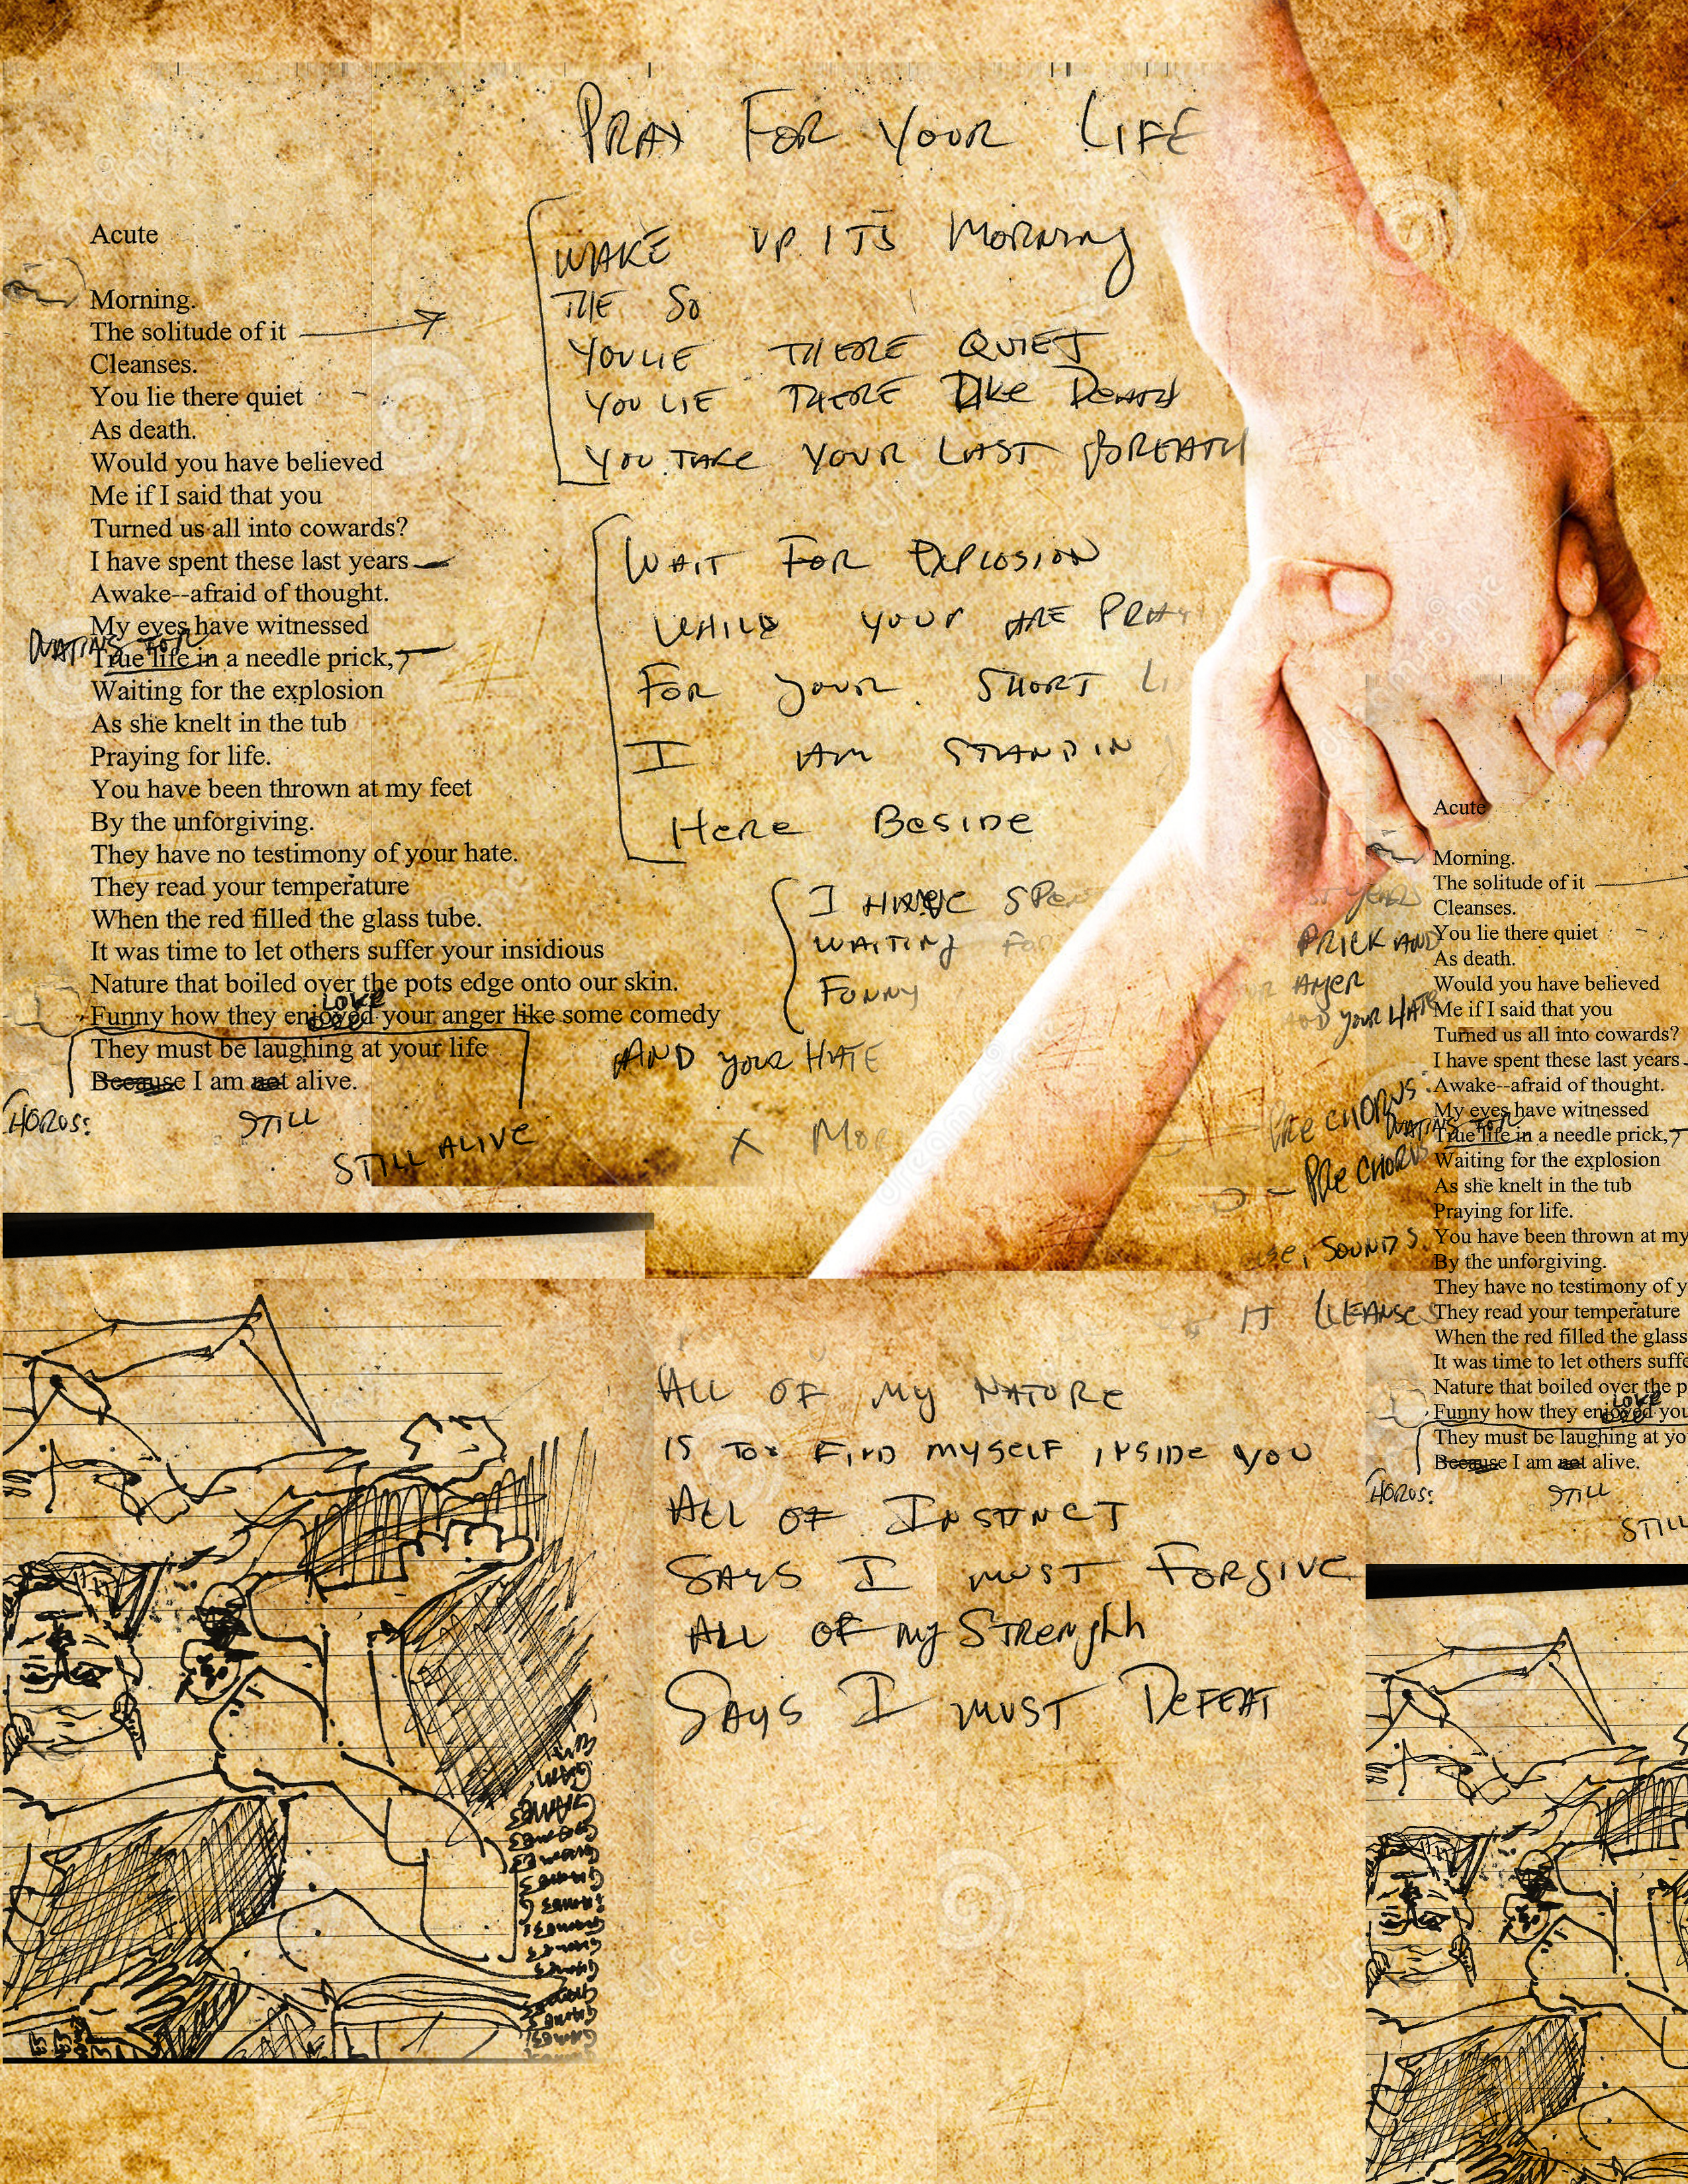 PRAY FOR YOUR LIFE
Acute
Morning.
The solitude of it
Cleanses.
You lie there quiet
As death.
Would you have believed
Me if I said that you
Turned us all into cowards?
I have spent these last years
Awake--afraid of thought.
My eyes have witnessed
WATING FOR
True life in a needle prick,
Waiting for the explosion
As she knelt in the tub
Praying for life.
You have been thrown at my feet
By the unforgiving.
They have no testimony of your hate.
They read your temperature
When the red filled the glass tube.
It was time to let others suffer your insidious
Nature that boiled over the pots edge onto our skin.
LOVE
Funny how they enjoyed your anger like some comedy
They must be laughing at your life
Because I am not alive.
CHORUS:
STILL
STILL ALIVE
WAKE UP ITS MORNING
THE SO
YOU LIE THERE QUIET
YOU LIE THERE LIKE DEATH
YOU TAKE YOUR LAST BREATH
WAIT FOR EXPLOSION
WHILE YOUR ARE PRAY
FOR YOUR SHORT LI
I AM STANDIN
HERE BESIDE
I HAVE SPE
WAITING FOR
FUNNY
AND YOUR HATE
X MOR
ST YEARS
PRICK AND
UR ANGER
AND YOUR HATE
PRE CHORUS:
- PRE CHORUS
SOUNDS
IT CLEANSES
ALL OF MY NATURE
IS TO FIND MYSELF INSIDE YOU
ALL OF INSTINCT
SAYS I MUST FORGIVE
ALL OF MY STRENGHH
SAYS I MUST DEFEAT
Acute
Morning.
The solitude of it
Cleanses.
You lie there quiet
As death.
Would you have believed
Me if I said that you
Turned us all into cowards?
I have spent these last years
Awake--afraid of thought.
My eyes have witnessed
WATING FOR
True life in a needle prick,
Waiting for the explosion
As she knelt in the tub
Praying for life.
You have been thrown at my
By the unforgiving.
They have no testimony of y
They read your temperature
When the red filled the glass
It was time to let others suffe
Nature that boiled over the p
LOVE
Funny how they enjoyed you
They must be laughing at yo
Because I am not alive.
CHORUS:
STILL
STILL